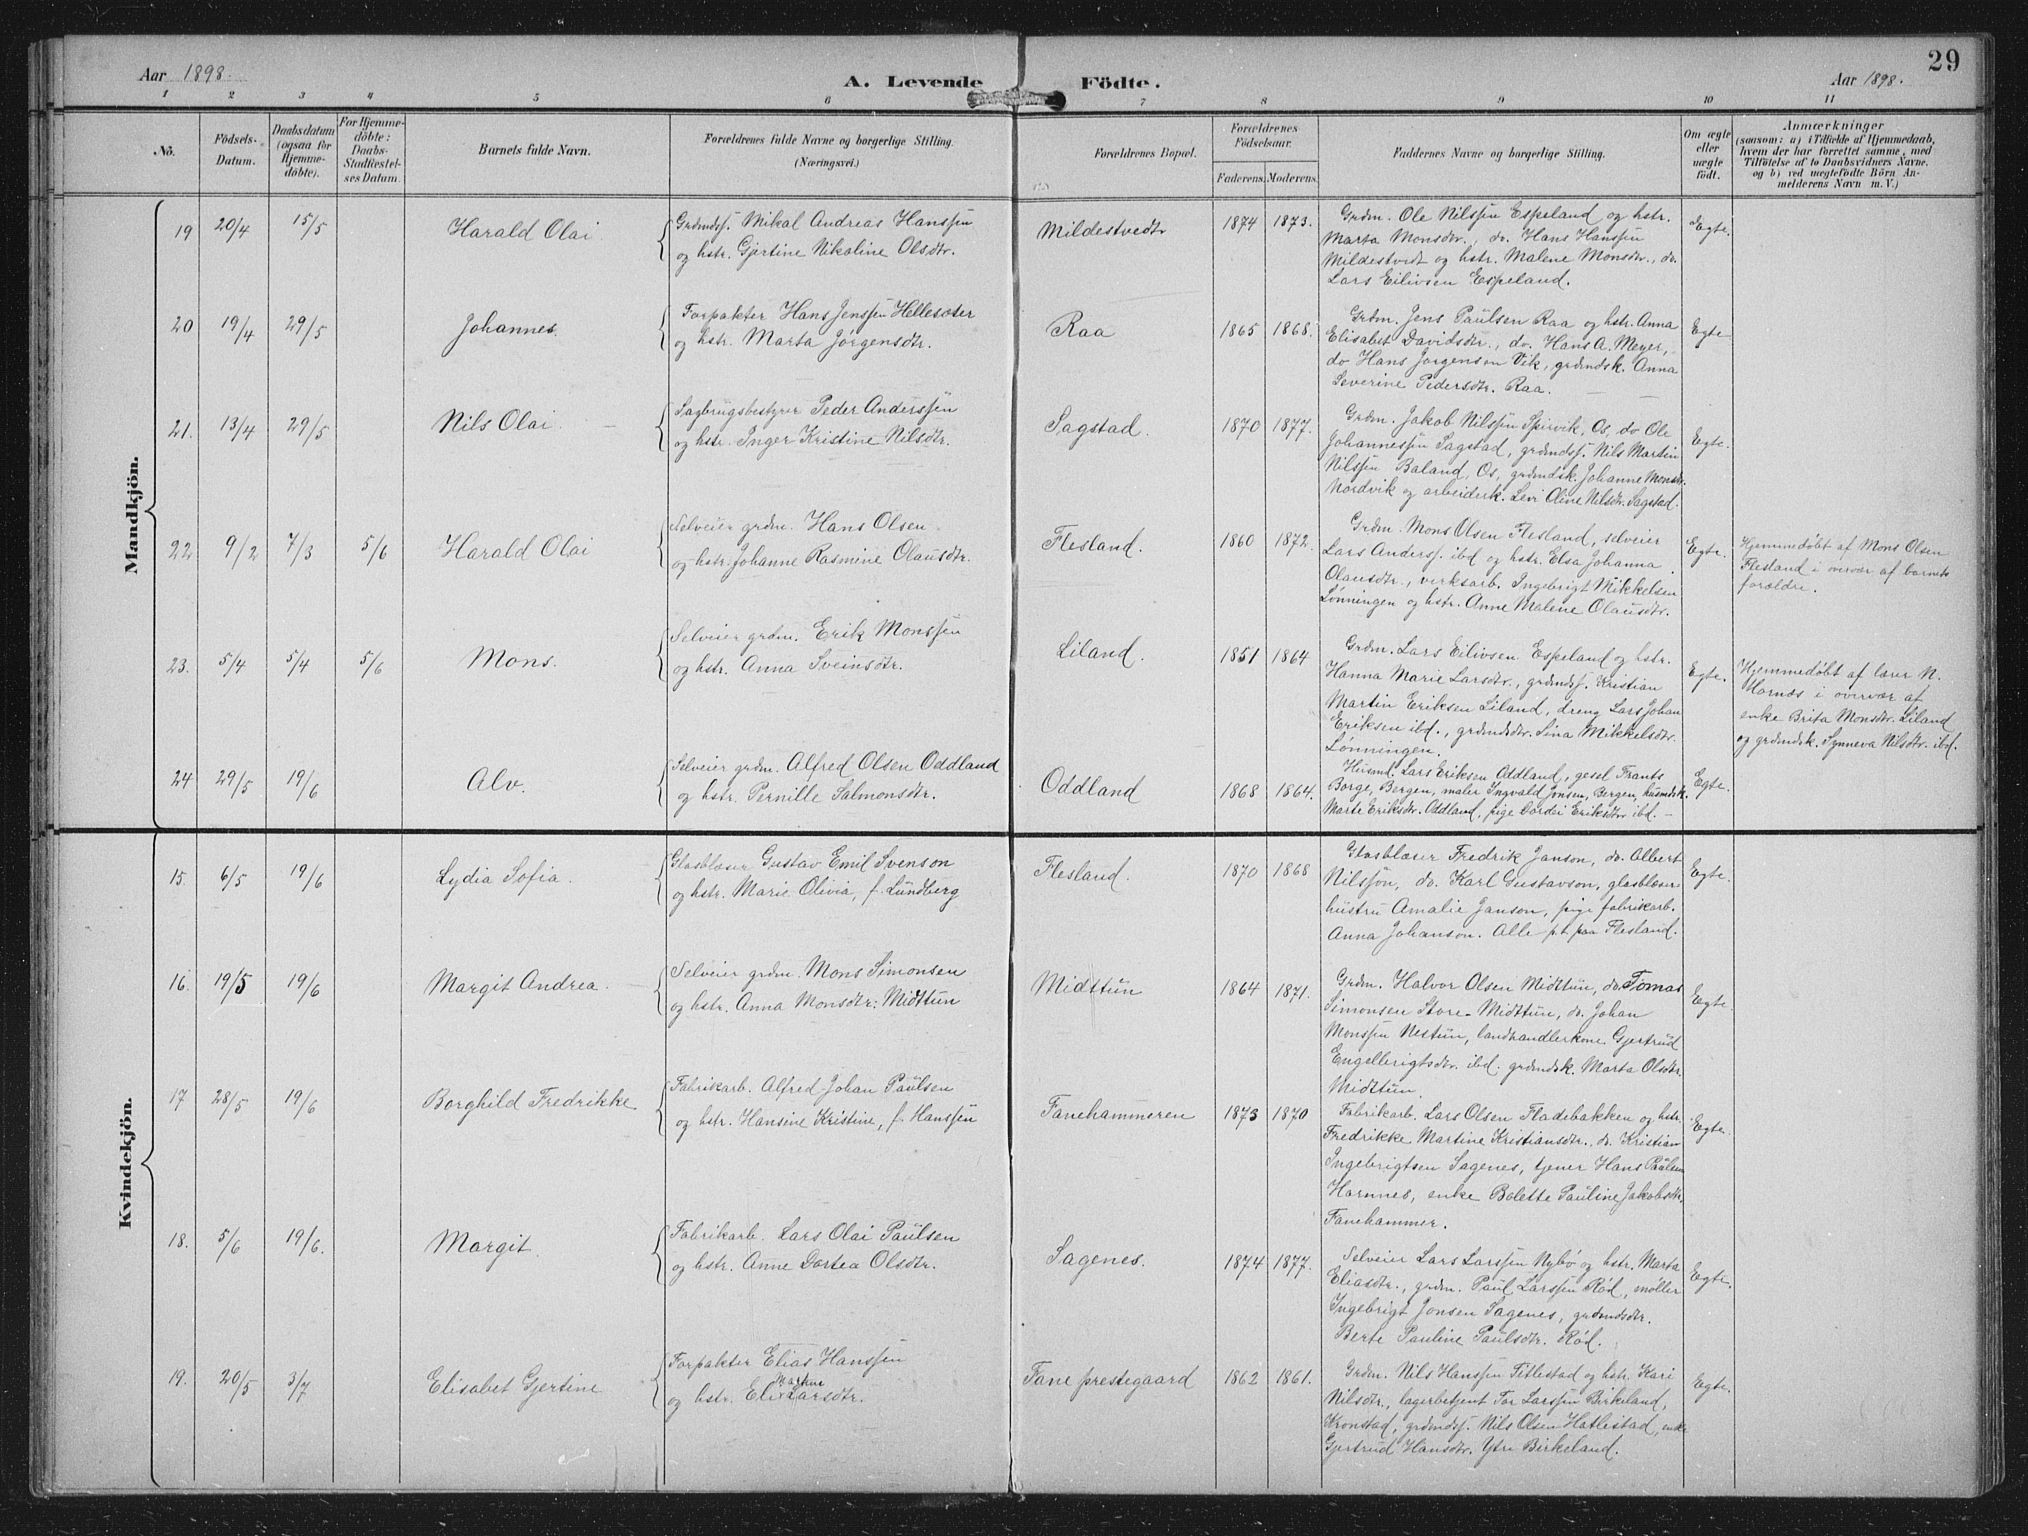 29
Aar 1898.
A. Levende Födte.
Aar 1898.
1 2 3 4 5 6 7 8 9 10 11
No.
Födsels-
Datum.
Daabsdatum
(ogsaa for
Hjemme-
döbte).
For Hjemme-
döbte:
Daabs-
Stadfæstel-
ses Datum.
Barnets fulde Navn.
Forældrenes fulde Navne og borgerlige Stilling.
(Næringsvei.)
Forældrenes Bopæl.
Forældrenes
Födselsaar.
Faderens. Moderens.
Faddernes Navne og borgerlige Stilling.
Om ægte
eller
uægte
født.
Anmærkninger
(saasom: a) i Tilfælde af Hjemmedaab,
hvem der har forrettet samme, med
Tilføielse af to Daabsvidners Navne,
og b) ved uægtefödte Börn An-
melderens Navn m. V.)
Mandkjön.
19 20/4 15/5 Harald Olai
Grdmds. Mikal Andreas Hanssen
og hstr. Gjertine Nikoline Olsdtr.
Mildestvedt 1874 1873.
Grdm. Ole Nilssen Espeland og hstr.
Marta Monsdtr., do. Hans Hanssen
Mildestvedt og hstr. Malene Monsdtr., do.
Lars Eilivsen Espeland.
Egte.
20 19/4 29/5 Johannes.
Forpakter Hans Jenssen Hellesæter
og hstr. Marta Jørgensdtr.
Raa 1865 1868.
Grdm. Jens Paulsen Raa og hstr. Anna
Elisabet Davidsdtr., do. Hans A. Meyer,
do Hans Jørgensen Vik, grdmdsk. Anna
Severine Pedersdtr. Raa.
Egte
21. 13/4 29/5 Nils Olai
Sagbrugsbestyrer Peder Anderssen
og hstr. Inger Kristine Nilsdtr.
Sagstad. 1870 1877.
Grdm. Jakob Nilssen Spirvik, Os, do Ole
Johannessen Sagstad, grdmdss. Nils Martin
Nilssen Baland, Os, grdmdsk. Johanne Monsdtr.
Nordvik og arbeiderk. Levi Oline Nilsdtr. Sagstad.
Egte.
22 9/2 7/3 5/6 Harald Olai
Selveier grdm. Hans Olsen
og hstr. Johanne Rasmine Olausdtr.
Flesland. 1860 1872.
Grdm. Mons Olsen Flesland, selveier
Lars Anderss. ibd og hstr. Elsa Johanna
Olausdtr., virksarb. Ingebrigt Mikkelsen
Lønningen og hstr. Anne Malene Olausdtr.
Egte.
Hjemmedøbt af Mons Olsen
Flesland i overvær af barnets
forældre.
23. 5/4 5/4 5/6 Mons.
Selveier grdm. Erik Monssen
og hstr. Anna Sveinsdtr.
Liland. 1851 1864
Grdm. Lars Eilivsen Espeland og hstr.
Hanna Marie Larsdtr., grdmdss. Kristian
Martin Eriksen Liland, dreng Lars Johan
Eriksen ibd., grdmdsdtr. Sina Mikkelsdtr.
Lønningen.
Egte.
Hjemmedøbt af lærer N.
Hornæs i overvær af
enke Brita Monsdtr. Liland
og grdmdsk. Synneva Nilsdtr. ibd.
24 29/5 19/6 Alv.
Selveier grdm. Alfred Olsen Oddland
og hstr. Pernille Salmonsdtr.
Oddland 1868 1864.
Husmd. Lars Eriksen Oddland, gesel Frants
Borge, Bergen, maler Ingvald Jensen, Bergen, husmdsk.
Marte Eriksdtr. Oddland, pige Eriksdtr ibd.
Egte.
Kvindekjön.
15. 6/5 19/6 Lydia Sofia.
Glasblæser Gustav Emil Svenson
og hstr. Marie Olivia, f. Lundberg
Flesland. 1870 1868
Glasblæser Fredrik Janson, do. Albert
Nilssøn, do. Karl Gustavson, glasblæser-
hustru Amalie Janson, pige fabrikarb.
Anna Johanson. Alle p.t. paa Flesland.
Egte.
16. 19/5 19/6 Margit Andrea.
Selveier grdm. Mons Simonsen
og hstr. Anna Monsdtr. Midttun
Midttun 1864 1871.
Grdm. Halvor Olsen Midttun, do. Tomas
Simonsen Store-Midttun, do. Johan
Monssen Nestun, landhandlerkone Gjertrud
Engelbrigtsdtr. ibd. grdmdsk. Marta Olsdtr.
Midttun.
Egte
17 28/5 19/6 Borghild Fredrikke
Fabrikarb. Alfred Johan Paulsen
og hstr. Hansine Kristine, f. Hanssen
Fanehammeren 1873 1870
Fabrikarb. Lars Olsen Fladebakken og hstr.
Fredrikke Martine Kristiansdtr., do. Kristian
Ingebrigtsen Sagenes, tjener Hans Paulsen
Hamnes, enke Bolette Pauline Jakobsdtr.
Fanehammer.
Egte.
18. 5/6 19/6. Margit.
Fabrikarb. Lars Olai Paulsen
og hstr. Anne Dortea Olsdtr.
Sagenes. 1874 1877.
Selveier Lars Larssen Nybø og hstr. Marta
Eliasdtr., grdm. Paul Larssen Rød, møller
Ingebrigt Jonsen Sagenes, grdmdsdtr.
Berte Pauline Paulsdtr. Rød.
Egte.
19. 20/5 3/7 Elisabet Gjertine
Forpakter Elias Hanssen
og hstr. Eli Larsdtr.
Fane prestegaard 1862 1861.
Grdm. Nils Hanssen Titlestad og hstr. Kari
Nilsdtr., lagerbetjent Tor Larssen Birkeland,
Kronstad, grdmdss. Nils Olsen Hatlestad, enke
Gjertrud Hansdtr. Ytre Birkeland.
Egte.